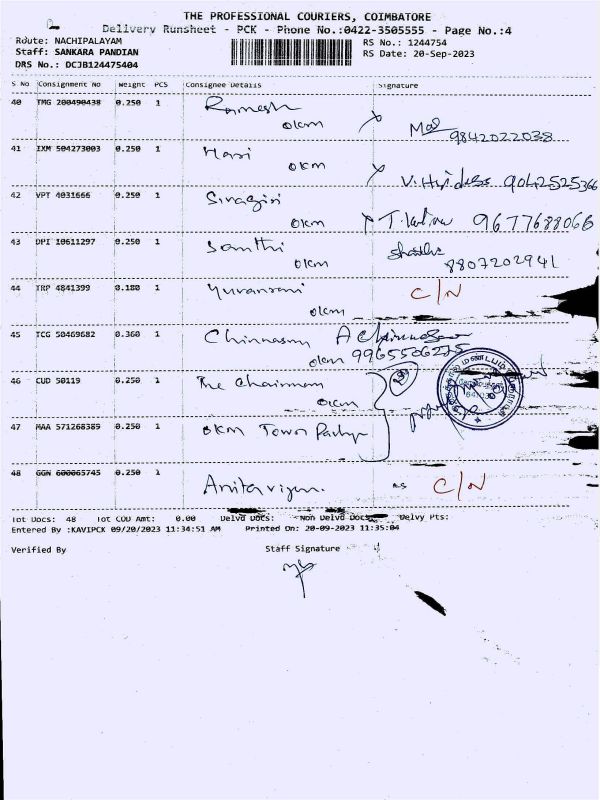 THE PROFESSIONAL COURIERS, COIMBATORE
Delivery Runsheet - PCK - Phone No.:0422-3505555 - Page No.:4
Route: NACHIPALAYAM
Staff: SANKARA PANDIAN
DRS No.: DCJB124475404
RS No.: 1244754
RS Date: 20-Sep-2023
S No Consignment No Weight PCS Consignee Details Signature
40 TMG 200490438 0.250 1 Ramesh
okm 9842022038
41 IXM 504273003 0.250 1 Hari
okm 9042525366
42 VPT 4031666 0.250 1 Sivagiri
okm 9677688066
43 DPI 10611297 0.250 1 Santhi
okm 8807202941
44 TRP 4841399 0.180 1 Yuvanrani C/N
okm
45 TCG 50469682 0.360 1 Chinnasamy
okm 9965506275
46 CUD 50119 0.250 1 The Chairman
okm
47 MAA 571268389 0.250 1 okm Town
48 GGN 600065745 0.250 1 C/N
Tot Docs: 48 Tot COD Amt: 0.00 Delvd Docs: Non Delvd Docs: Delvy Pts:
Entered By :KAVIPCK 09/20/2023 11:34:51 AM Printed On: 20-09-2023 11:35:04
Verified By Staff Signature